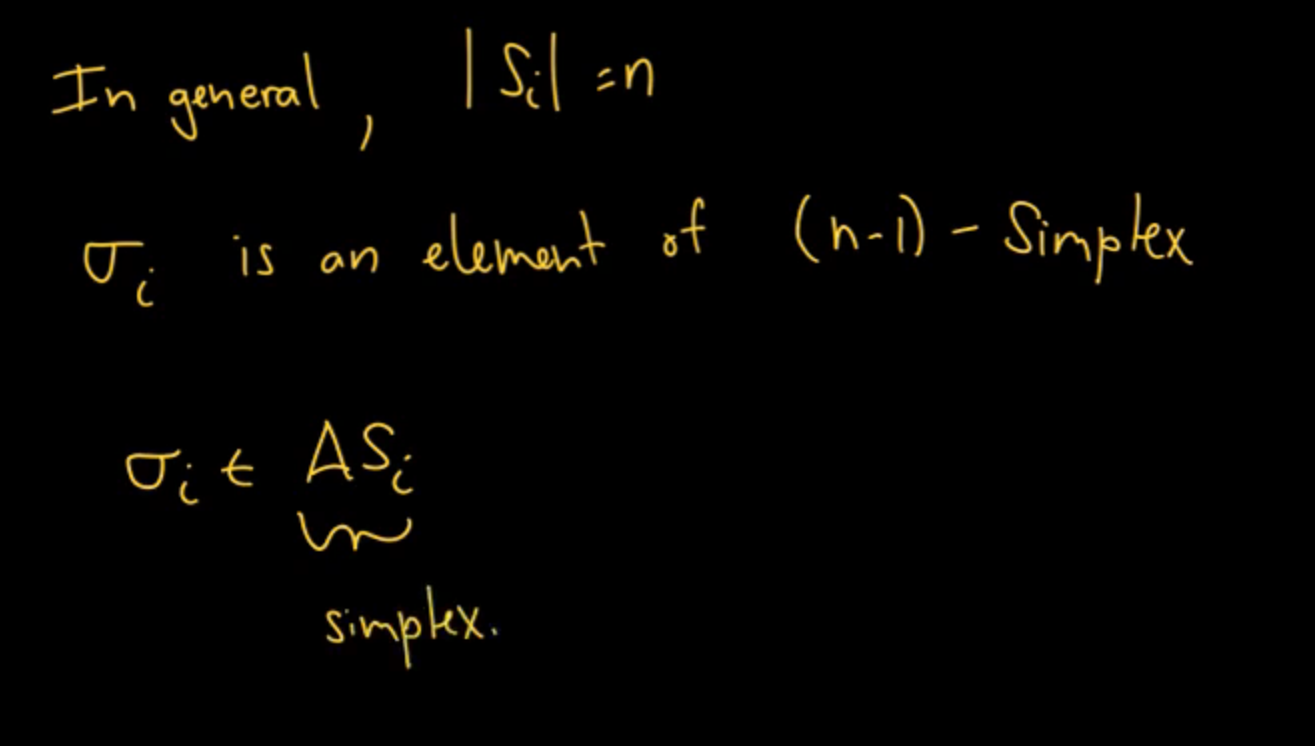 In general, |Si| = n
σi is an element of (n-1) - Simplex
σi ∈ ΔSi
simplex.